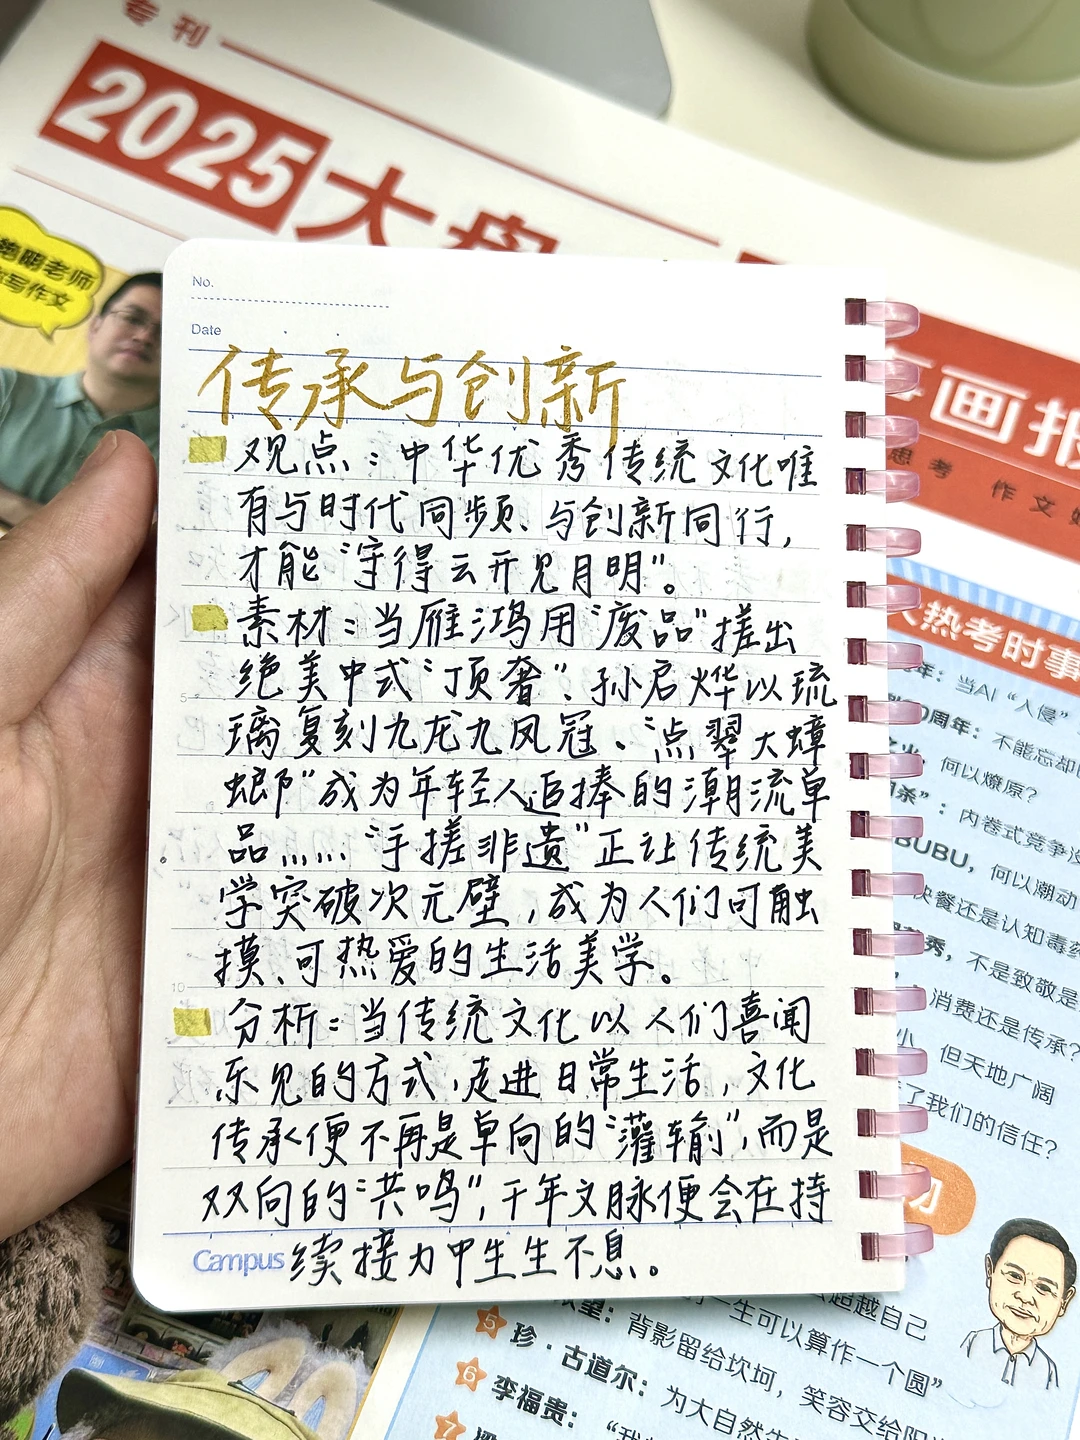 专刊
2025大
老师
写作文
画报
思考 作文
No.
Date
传承与创新
观点：中华优秀传统文化唯
有与时代同步频、与创新同行，
才能“守得云开见月明”。
素材：当雁鸿用“废品”搓出
绝美中式“顶奢”、孙启烨以琉
璃复刻九龙九凤冠、“点翠大蟑
螂”成为年轻人追捧的潮流单
品……“手搓非遗”正让传统美
学突破次元壁，成为人们可触
摸、可热爱的生活美学。
分析：当传统文化以人们喜闻
乐见的方式，走进日常生活，文化
传承便不再是单向的“灌输”，而是
双向的“共鸣”，千年文脉便会在持
续接力中生生不息。
Campus
5
10
热考时事
年：当AI“人侵”
0周年：不能忘却
何以燎原？
杀”：内卷式竞争
BUBU，何以潮动
快餐还是认知毒
秀，不是致敬是
消费还是传承？
小 但天地广阔
了我们的信任？
超越自己
5
望：背影留给坎坷，笑容交给阳
一生可以算作一个圆”
6
珍·古道尔：为大自然
7
李福贵：“我